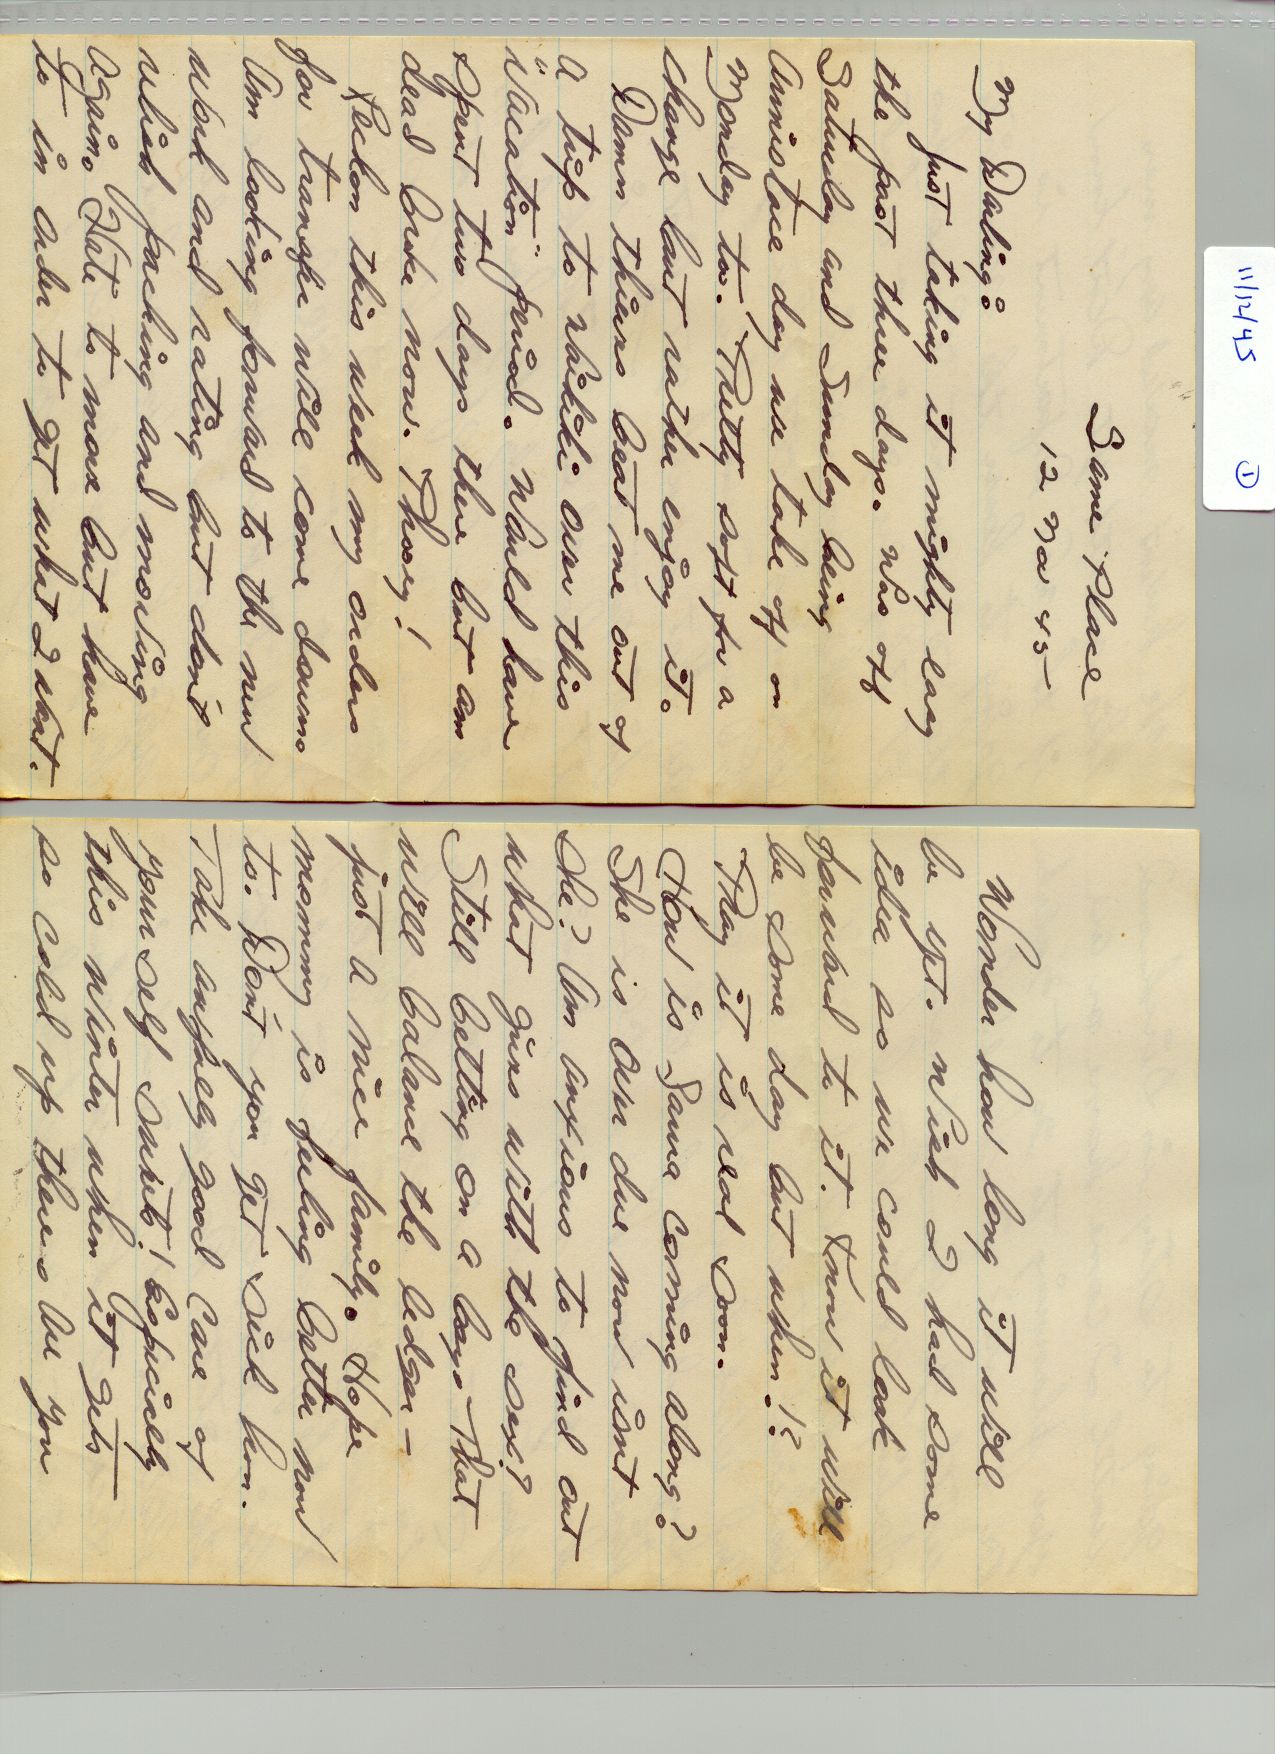 11/12/45 ①
Same Place
12 Nov 45
My Darling:
Just taking it mighty easy
the past three days. Was off
Saturday and Sunday being
Armistace day we take off on
Monday too. Pretty soft for a
change but rather enjoy it.
Damn thiens beat me out of
a trip to Waikiki over this
"Vacation" period. Would have
spent two days there but am
dead broke now. Phooey!
Reckon this week my orders
for transfer will come down.
Am looking forward to the new
work and rating but don't
relish packing and moving
again. Hate to move but have
to in order to get what I want.
Wonder how long it will
be yet. Wish I had some
idea so we could look
forward to it. Know it will
be some day but when!?
Pray it is real soon.
How is Sama coming along?
She is over due now isn't
she? Am anxious to find out
what gives with the sex?
Still betting on a boy. That
will balance the ledger—
just a nice family. Hope
mommy is feeling better now
to. Don't you get sick hon.
Take awfully good care of
yourself sweets! Especiely
this winter when it gets
so cold up there. Are you